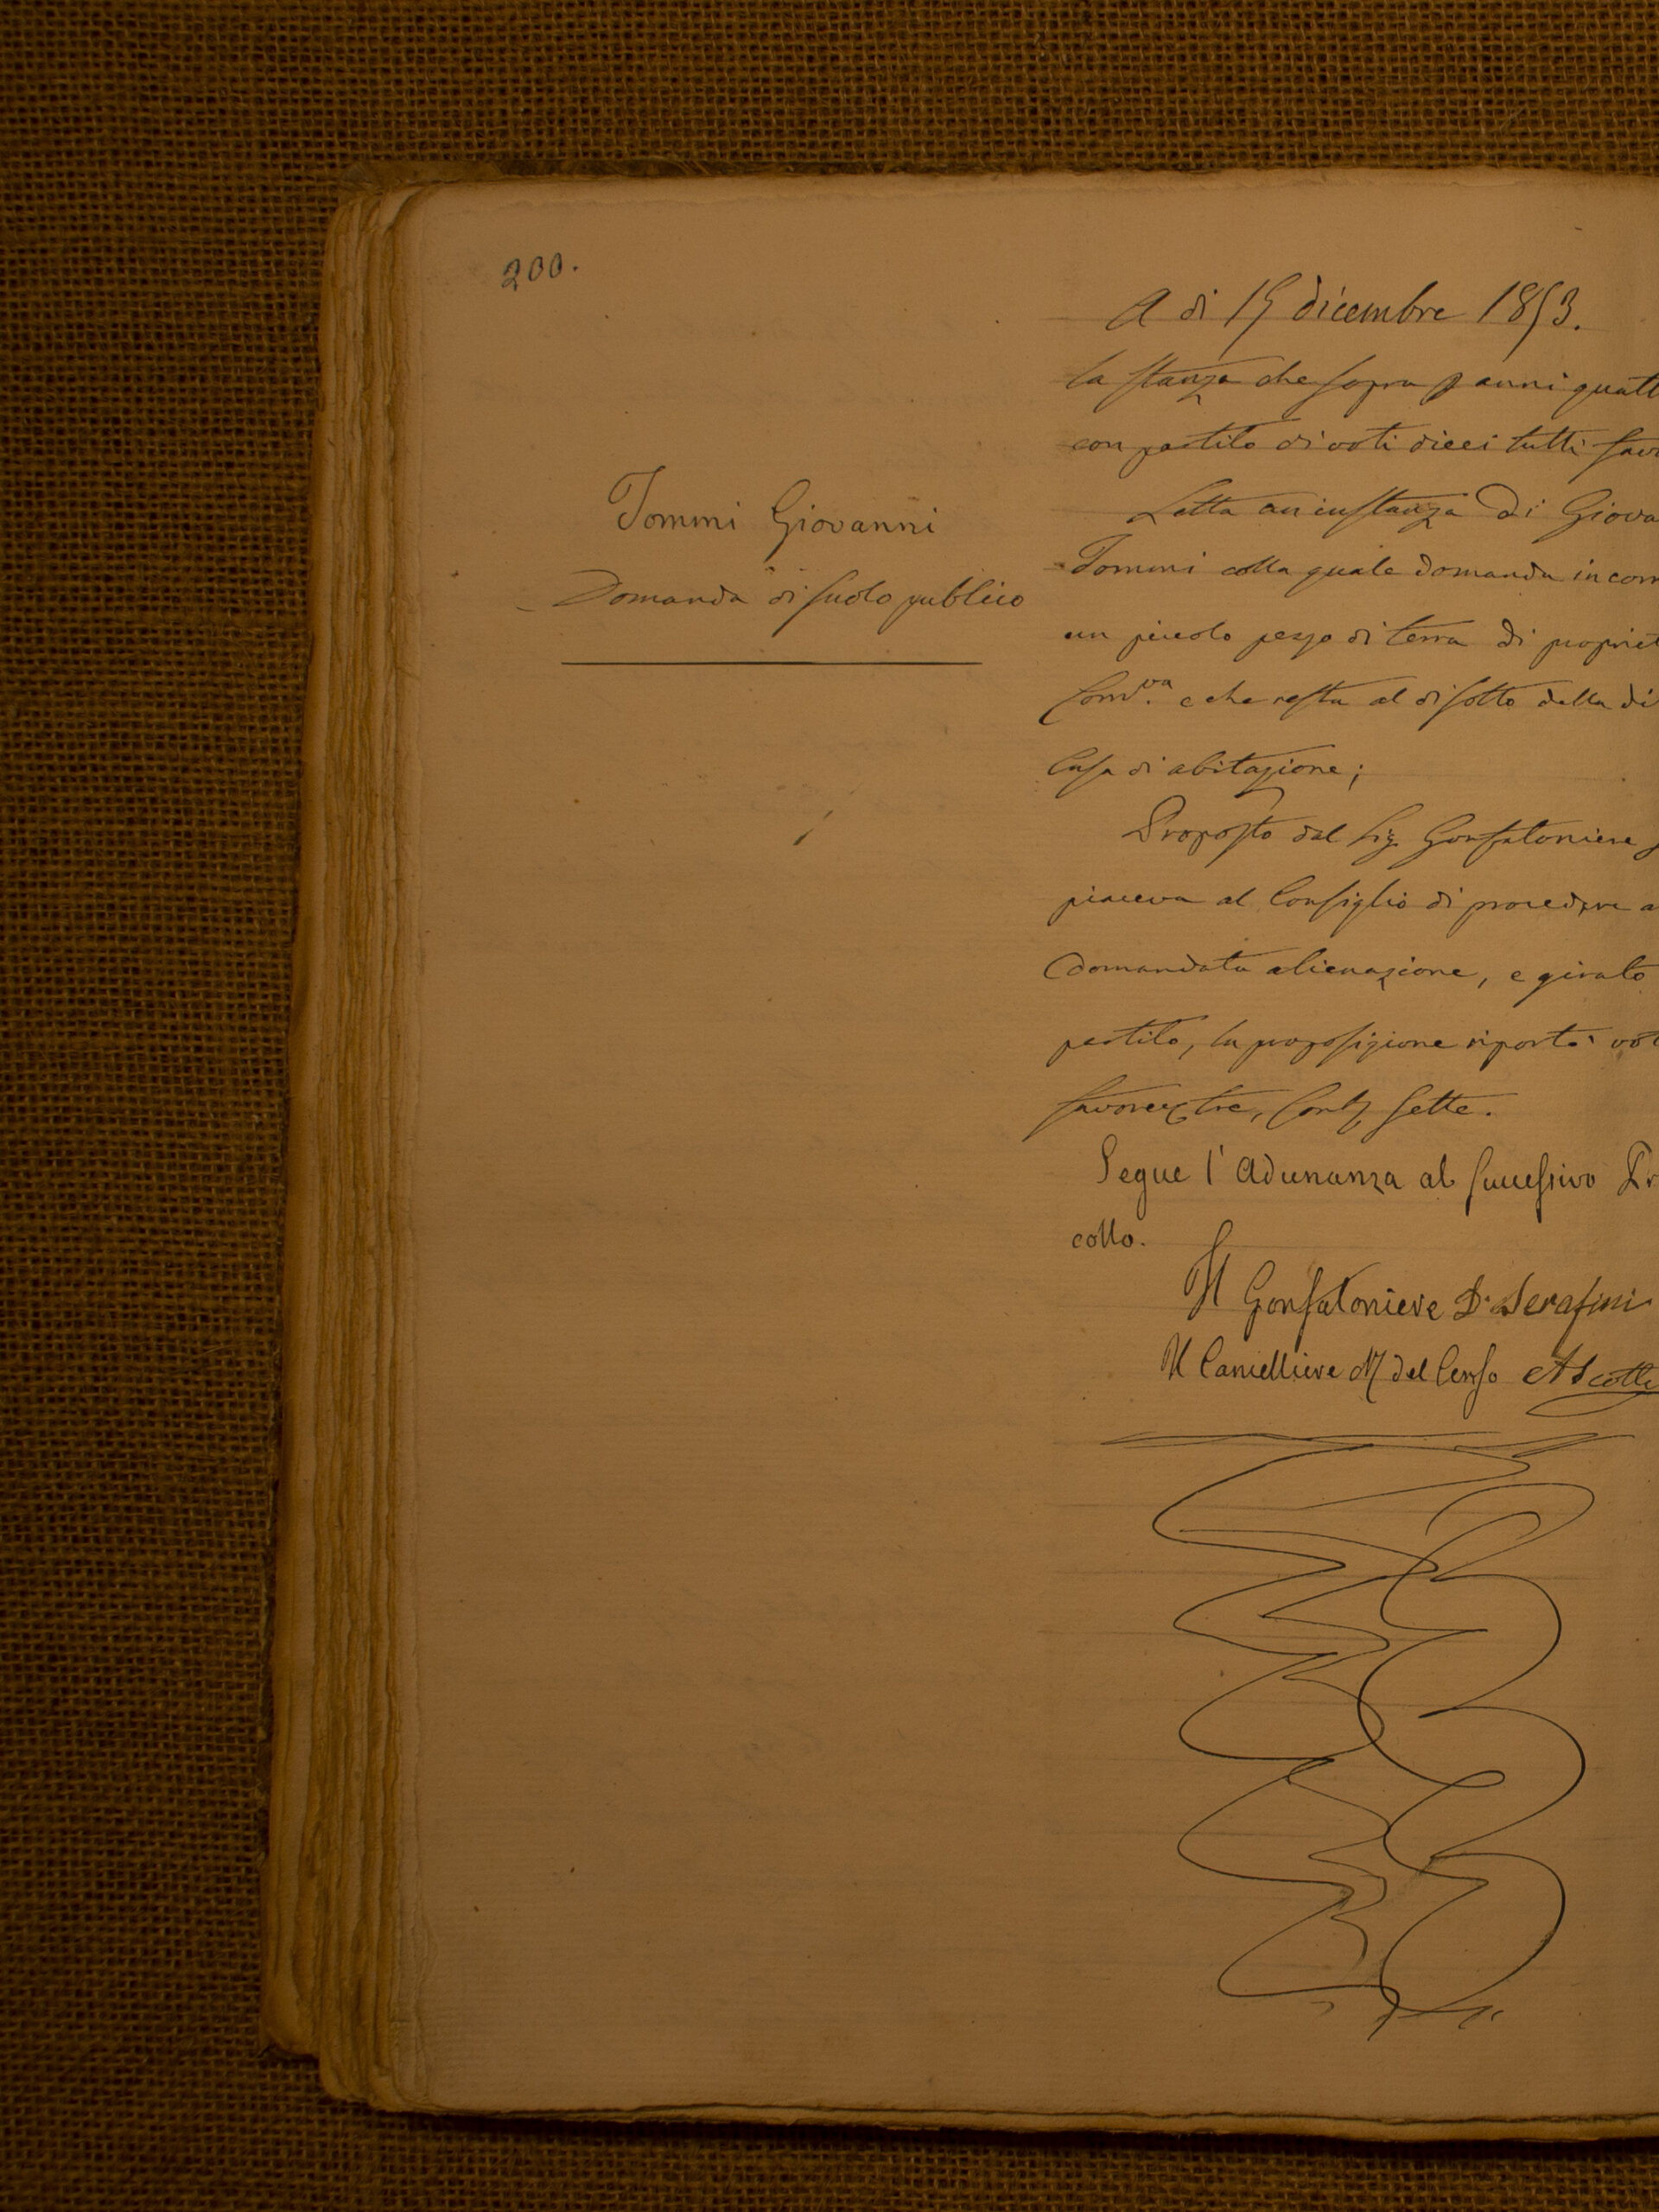 200.
A di 15 dicembre 1853.
Tommi Giovanni
Domanda di suolo publico
la stanza che sopra p anni quatt
con partito di voti dieci tutti favo
Letta un instanza di Giova
Tommi colla quale domanda in com
un piccolo pezzo di terra di propriet
Com.va e che resta al di sotto della di
Casa di abitazione;
Proposto dal Sig. Gonfaloniere
piaceva al Consiglio di procedere a
domandata alienazione, e girato
partito, la proposizione riportò vot
favorev. tre, Contr. sette.
Segue l'Adunanza al successivo Pr
collo.
Il Gonfaloniere Dr. Serafini
Il Cancelliere M del Censo AScotti